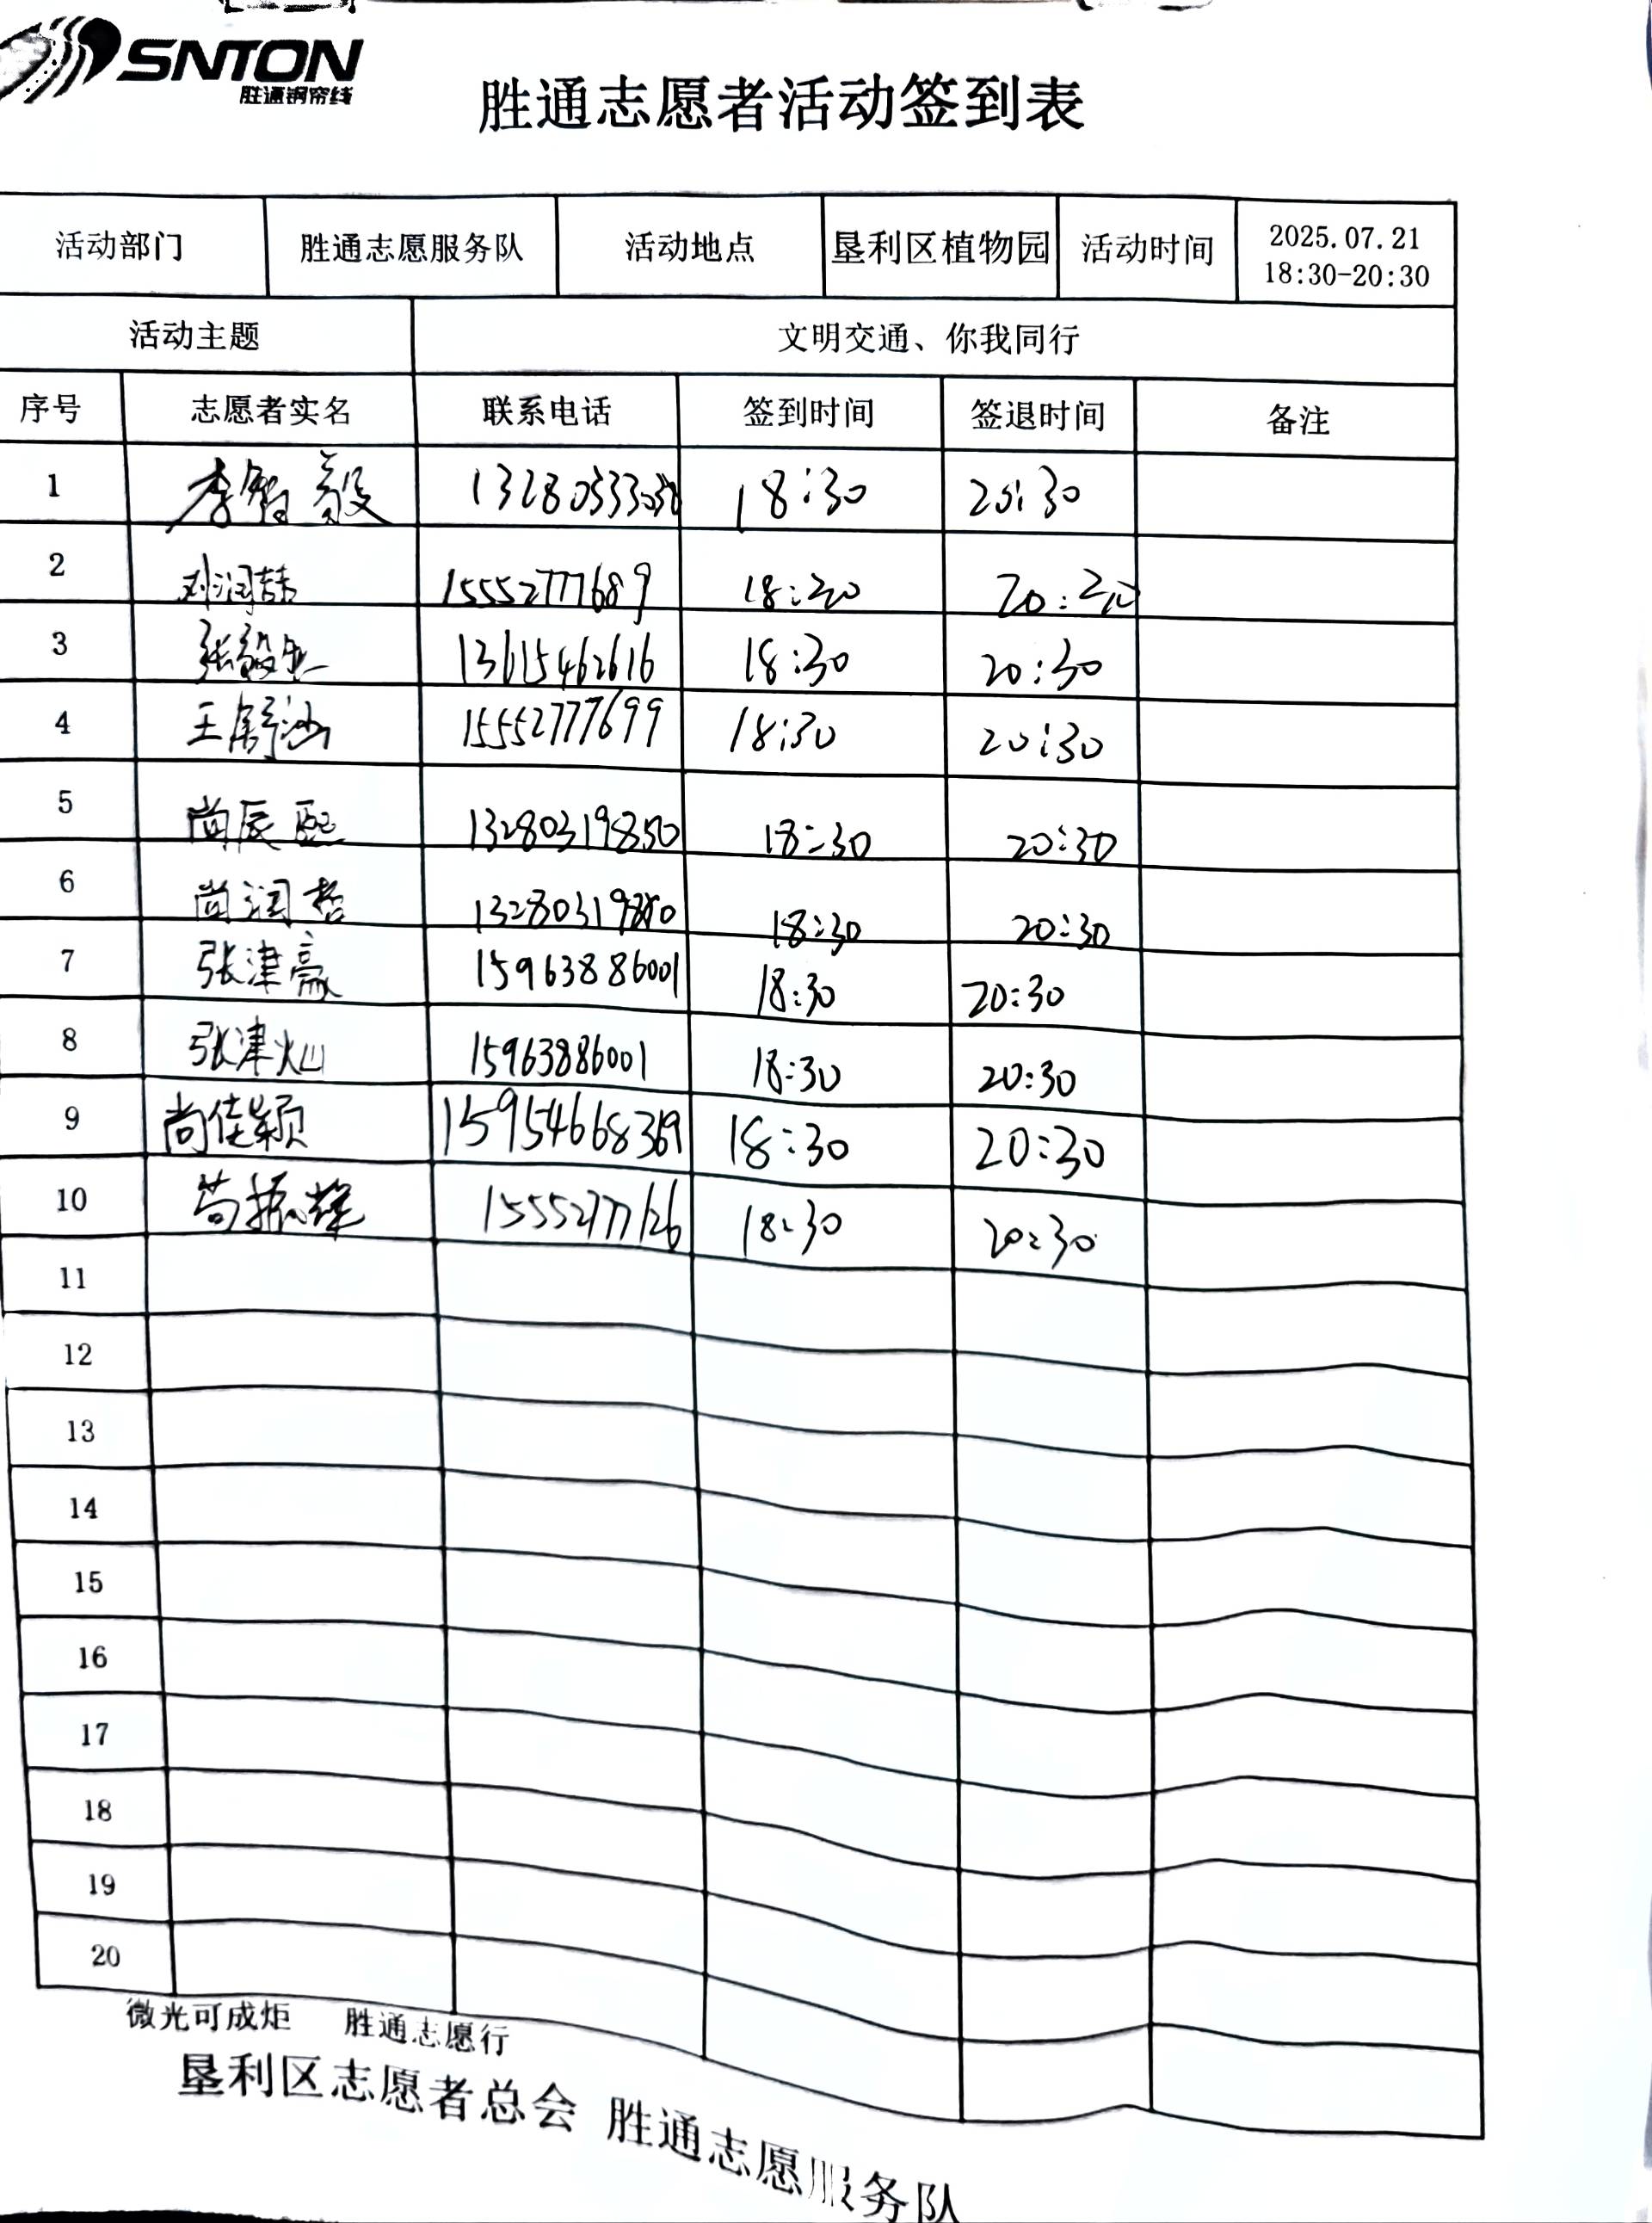 SNTON
胜通钢帘线
胜通志愿者活动签到表
活动部门 胜通志愿服务队 活动地点 垦利区植物园 活动时间 2025.07.21 18:30-20:30
活动主题 文明交通、你我同行
序号 志愿者实名 联系电话 签到时间 签退时间 备注
1 李智毅 18:30 20:30
2 刘润喆 15552777689 18:30 20:30
3 张毅 13615462616 18:30 20:30
4 王舒涵 15552777699 18:30 20:30
5 尚辰熙 13280319850 18:30 20:30
6 尚润哲 18:30 20:30
7 张津豪 15963886001 18:30 20:30
8 张津灿 15963886001 18:30 20:30
9 尚佳颖 15954668369 18:30 20:30
10 苟振辉 18:30 20:30
11
12
13
14
15
16
17
18
19
20
微光可成炬 胜通志愿行
垦利区志愿者总会 胜通志愿服务队